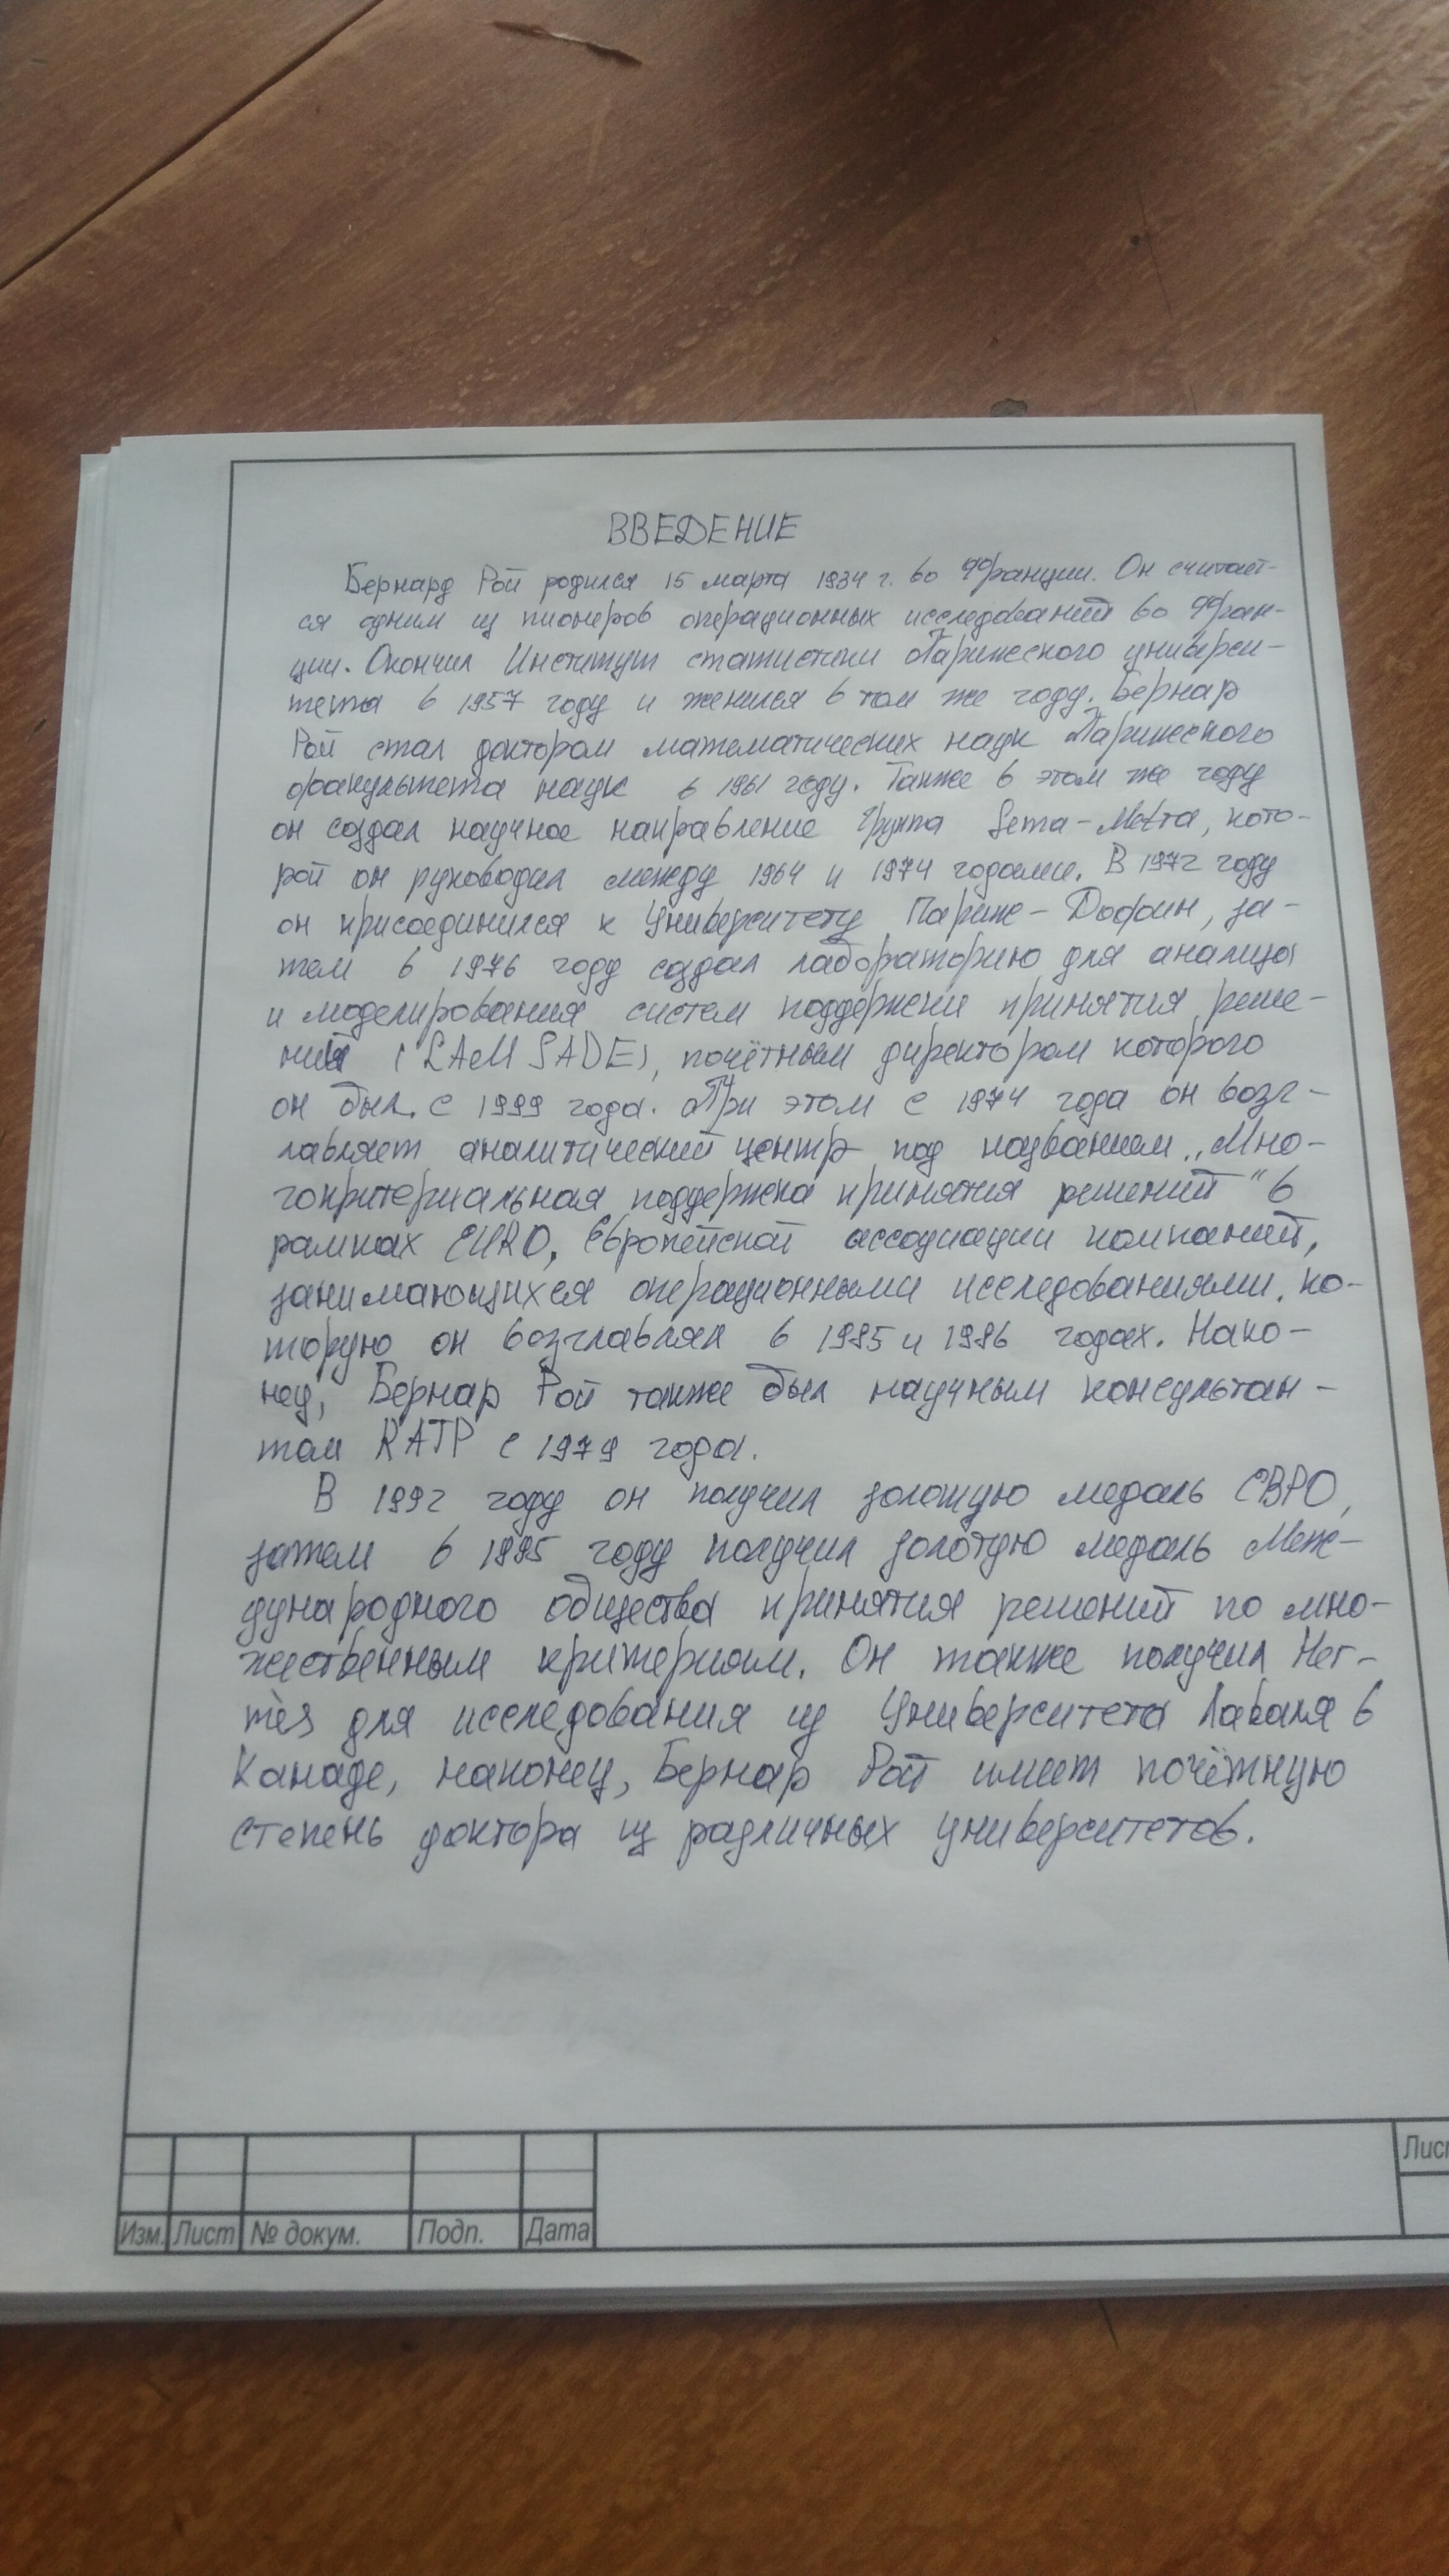 ВВЕДЕНИЕ
Бернард Рой родился 15 марта 1934 г. во Франции. Он считает-
ся одним из пионеров операционных исследований во Фран-
ции. Окончил Институт статистики Парижского универси-
тета в 1957 году и женился в том же году. Бернар
Рой стал доктором математических наук Парижского
факультета наук в 1961 году. Также в этом же году
он создал научное направление группа Sema-Metra, кото-
рой он руководил между 1964 и 1974 годами. В 1972 году
он присоединился к Университету Париж-Дофин, за-
тем в 1976 году создал лабораторию для анализа
и моделирования систем поддержки принятия реше-
ний (LAMSADE), почётным директором которого
он был с 1999 года. При этом с 1974 года он возг-
лавляет аналитический центр под названием „Мно-
гокритериальная поддержка принятия решений" в
рамках EURO, Европейской ассоциации компаний,
занимающихся операционными исследованиями, ко-
торую он возглавлял в 1985 и 1986 годах. Нако-
нец, Бернар Рой также был научным консультан-
том RATP с 1979 года.
В 1992 году он получил золотую медаль ЕВРО,
затем в 1995 году получил золотую медаль Меж-
дународного общества принятия решений по мно-
жественным критериям. Он также получил Her-
mès для исследования из Университета Лаваля в
Канаде, наконец, Бернар Рой имеет почётную
степень доктора из различных университетов.
Изм. Лист № докум. Подп. Дата